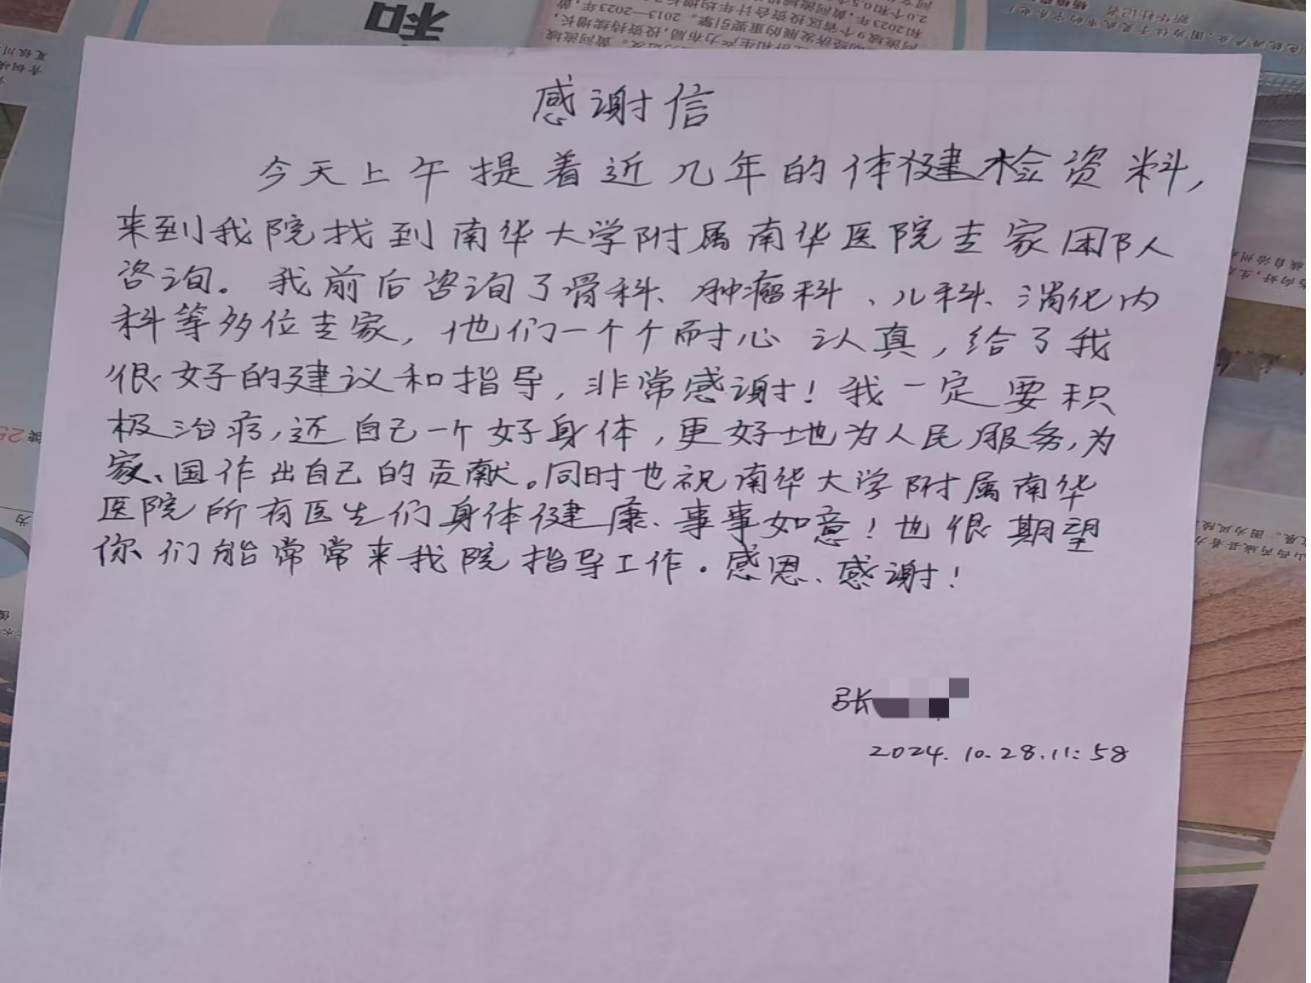 感谢信
今天上午提着近几年的体健检资料，
来到我院找到南华大学附属南华医院专家团队
咨询。我前后咨询了骨科、肿瘤科、儿科、消化内
科等多位专家，他们一个个耐心认真，给了我
很好的建议和指导，非常感谢！我一定要积
极治疗，还自己一个好身体，更好地为人民服务，为
家、国作出自己的贡献。同时也祝南华大学附属南华
医院所有医生们身体健康、事事如意！也很期望
你们能常常来我院指导工作。感恩、感谢！
张
2024.10.28.11:58
和